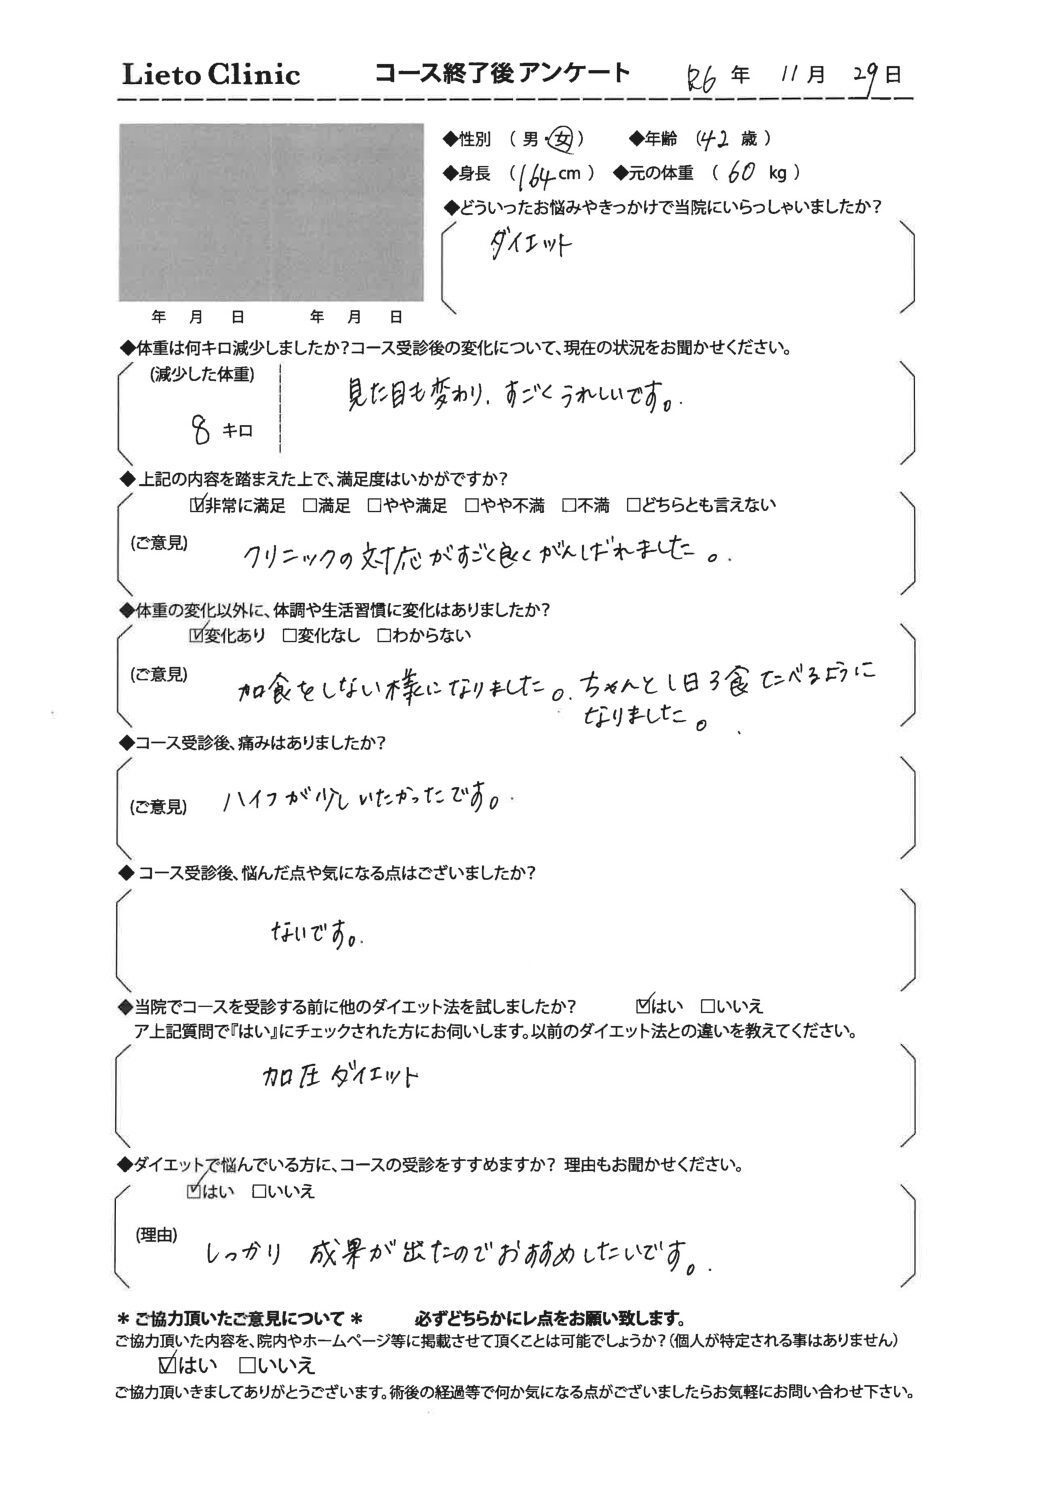 Lieto Clinic コース終了後アンケート R6年 11月 29日
◆性別 （ 男・女 ） ◆年齢 （42 歳 ）
◆身長 （164cm ） ◆元の体重 （ 60 kg ）
◆どういったお悩みやきっかけで当院にいらっしゃいましたか？
ダイエット
年 月 日 年 月 日
◆体重は何キロ減少しましたか？コース受診後の変化について、現在の状況をお聞かせください。
(減少した体重)
見た目も変わり、すごくうれしいです。
8 キロ
◆ 上記の内容を踏まえた上で、満足度はいかがですか？
☑非常に満足 □満足 □やや満足 □やや不満 □不満 □どちらとも言えない
(ご意見) クリニックの対応がすごく良くがんばれました。
◆体重の変化以外に、体調や生活習慣に変化はありましたか？
☑変化あり □変化なし □わからない
(ご意見) 加食をしない様になりました。ちゃんと1日3食たべるように
なりました。
◆コース受診後、痛みはありましたか？
(ご意見) ハイフが少しいたかったです。
◆ コース受診後、悩んだ点や気になる点はございましたか？
ないです。
◆当院でコースを受診する前に他のダイエット法を試しましたか？ ☑はい □いいえ
ア上記質問で『はい』にチェックされた方にお伺いします。以前のダイエット法との違いを教えてください。
加圧ダイエット
◆ダイエットで悩んでいる方に、コースの受診をすすめますか？ 理由もお聞かせください。
☑はい □いいえ
(理由) しっかり 成果が出たのでおすすめしたいです。
＊ ご協力頂いたご意見について ＊ 必ずどちらかにレ点をお願い致します。
ご協力頂いた内容を、院内やホームページ等に掲載させて頂くことは可能でしょうか？（個人が特定される事はありません）
☑はい □いいえ
ご協力頂いきましてありがとうございます。術後の経過等で何か気になる点がございましたらお気軽にお問い合わせ下さい。